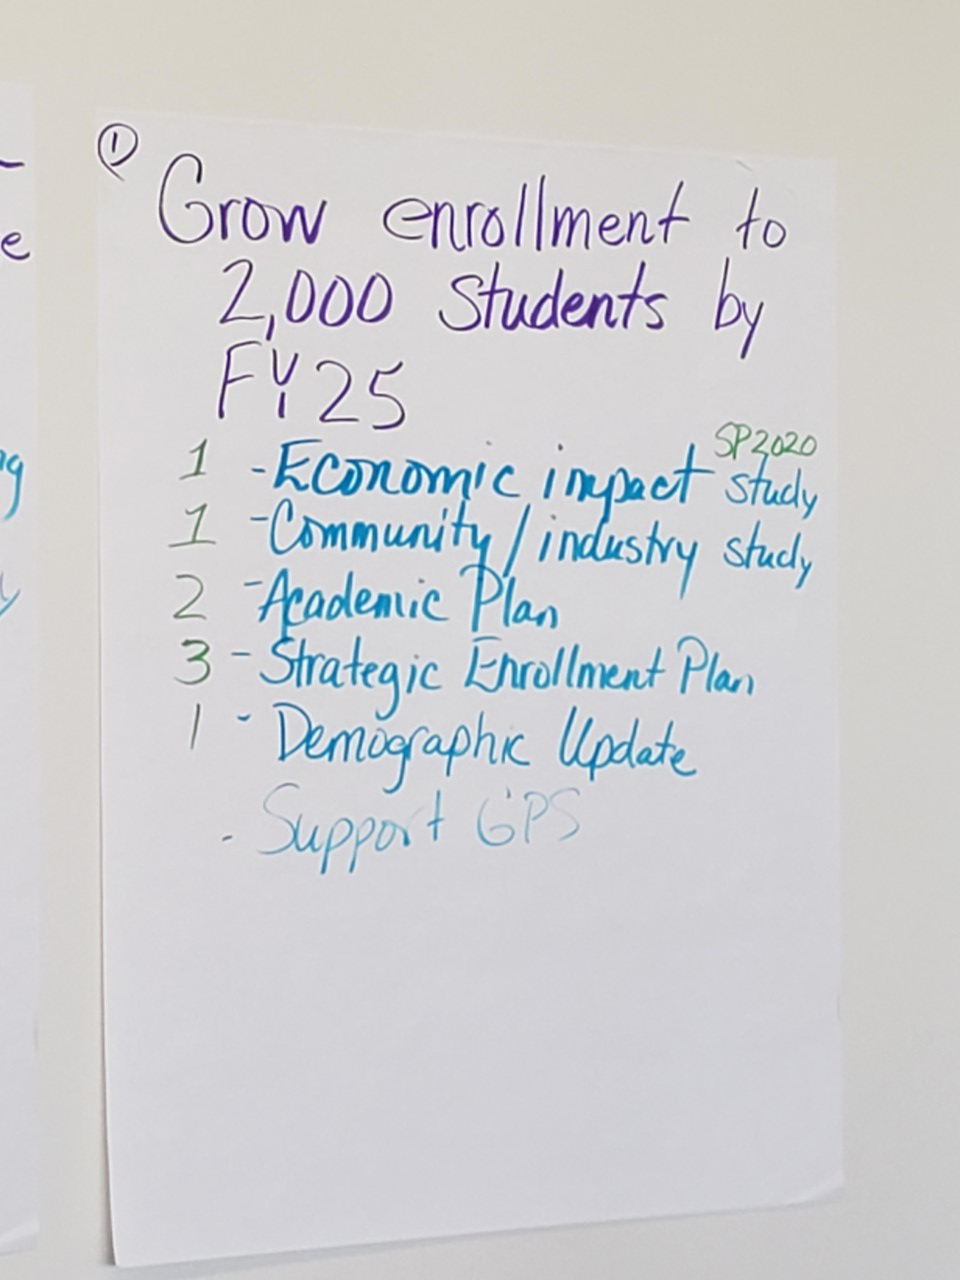 ① Grow enrollment to
2,000 Students by
FY25
SP2020
1 - Economic impact study
1 - Community/industry study
2 - Academic Plan
3 - Strategic Enrollment Plan
1 - Demographic Update
- Support GPS